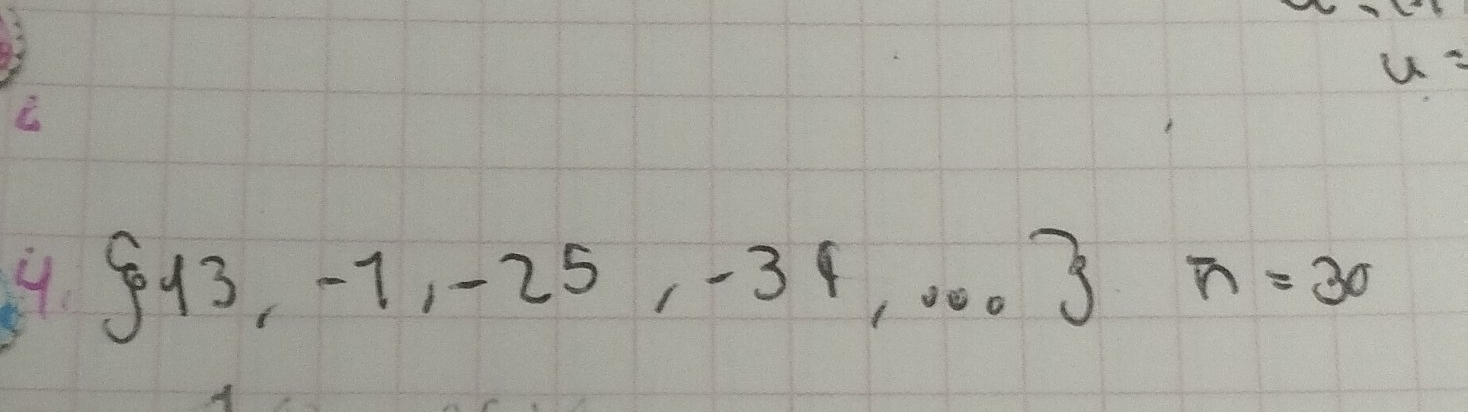 u =
4. {13, -1, -25, -34, ...} n = 30